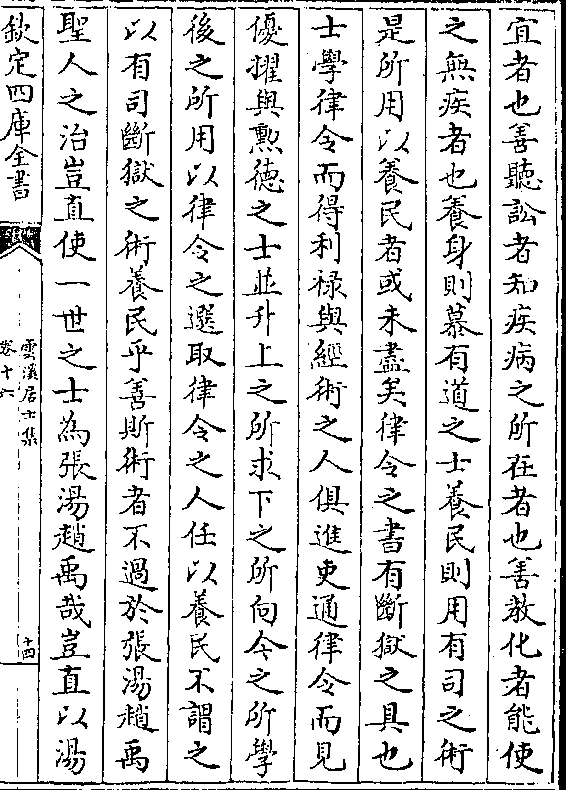 宜者也善聽訟者知疾病之所在者也善教化者能使
之無疾者也養身則慕有道之士養民則用有司之術
是所用以養民者或未盡矣律令之書有斷獄之具也
士學律令而得利祿與經術之人俱進吏通律令而見
優擢與勲徳之士並升上之所求下之所向今之所學
後之所用以律令之選取律令之人任以養民不謂之
以有司斷獄之術養民乎善斯術者不過於張湯趙禹
聖人之治豈直使一世之士為張湯趙禹哉豈直以湯
欽定四庫全書
雲溪居士集
卷十六
十四